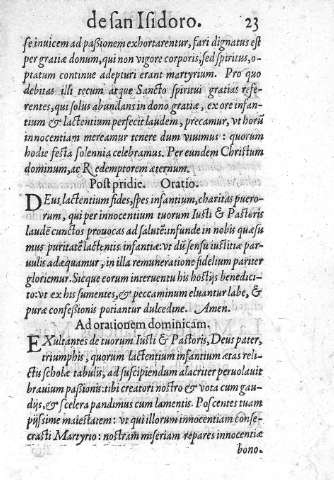 de san Isidoro. 23
se inuicem ad paßionem exhortarentur, fari dignatus est
per gratiæ donum, qui non vigore corporis, sed spiritus, o-
ptatum continue adepturi erant martyrium. Pro quo
debitas illi tecum atque Sancto spiritui gratias refe-
rentes, qui solus abundans in dono gratiæ, ex ore infan-
tium & lactentium perfecit laudem, precamur, vt horũ
innocentiam mereamur tenere dum viuimus: quorum
hodie festa solennia celebramus. Per eundem Christum
dominum, ac Redemptorem æternum.
Post pridie. Oratio.
DEus, lactentium fides, spes infantum, charitas puero-
rum, qui per innocentium tuorum Iusti & Pastoris
laudẽ cunctos prouocas ad salutẽ: infunde in nobis quæsu-
mus puritatẽ lactentis infantiæ: vt dũ sensu iustitiæ par-
uulis adæquamur, in illa remuneratione fidelium pariter
gloriemur. Sicque eorum interuentu his hostijs benedici-
to: vt ex his sumentes, & peccaminum eluantur labe, &
pura confeßionis potiantur dulcedine. Amen.
Ad orationem dominicam.
EXultantes de tuorum Iusti & Pastoris, Deus pater,
triumphis, quorum lactentium infantium ætas reli-
ctis scholæ tabulis, ad suscipiendum alacriter peruolauit
brauium paßionis: tibi creatori nostro & vota cum gau-
dijs, & scelera pandimus cum lamentis. Poscentes tuam
pijssime maiestatem: vt qui illorum innocentiam conse-
crasti Martyrio: nostram miseriam repares innocentiæ
bono.